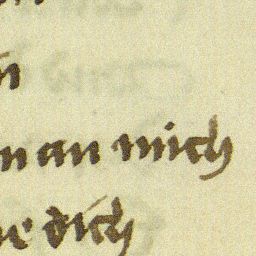 n an mich
e dich